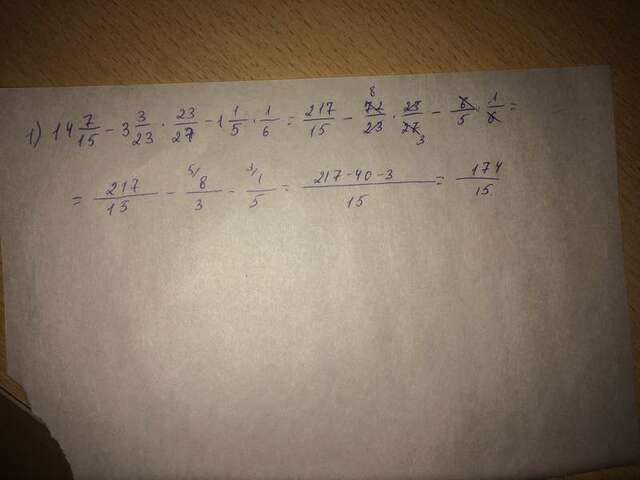 1) 14 7/15 - 3 3/23 · 23/27 - 1 1/5 · 1/6 = 217/15 - 72/23 · 23/27 - 6/5 · 1/6 =
= 217/15 - 8/3 - 1/5 = 217-40-3/15 = 174/15